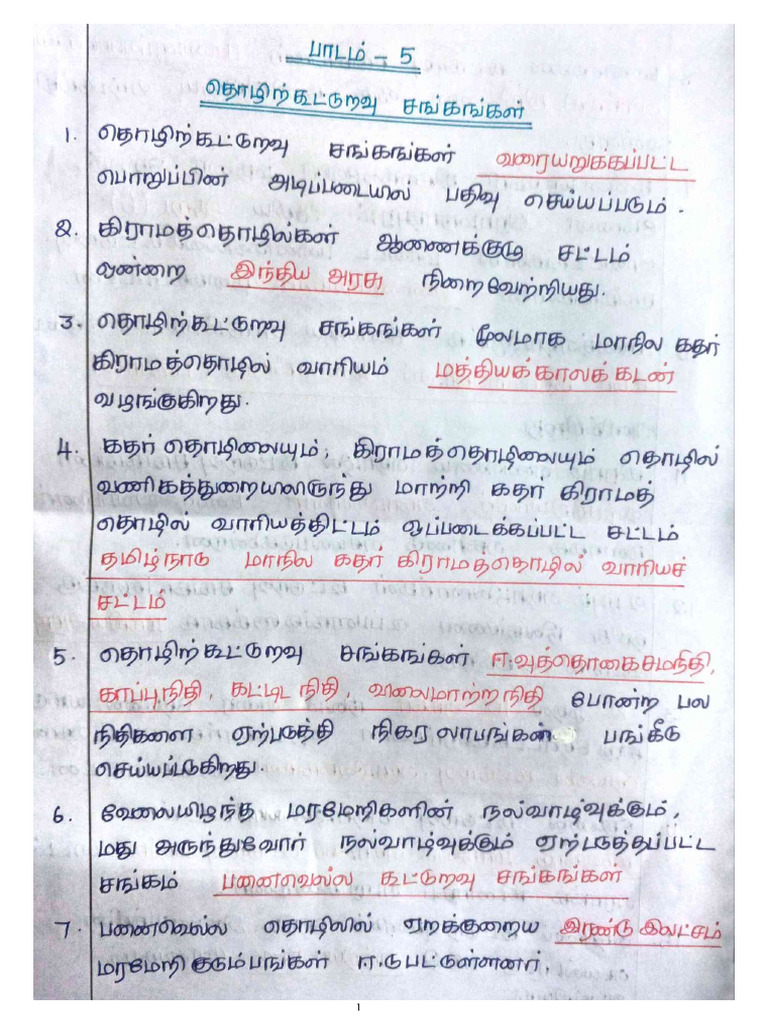 பாடம் - 5
தொழிற்கூட்டுறவு சங்கங்கள்
1. தொழிற்கூட்டுறவு சங்கங்கள் வரையறுக்கப்பட்ட
பொறுப்பின் அடிப்படையில் பதிவு செய்யப்படும்.
2. கிராமத்தொழில்கள் ஆணைக்குழு சட்டம்
ஒன்றை இந்திய அரசு நிறைவேற்றியது.
3. தொழிற்கூட்டுறவு சங்கங்கள் மூலமாக மாநில கதர்
கிராமத்தொழில் வாரியம் மத்தியக்காலக் கடன்
வழங்குகிறது.
4. கதர் தொழிலையும், கிராமத்தொழிலையும் தொழில்
வணிகத்துறையிலிருந்து மாற்றி கதர் கிராமத்
தொழில் வாரியத்திட்டும் ஒப்படைக்கப்பட்ட சட்டம்
தமிழ்நாடு மாநில கதர் கிராமத்தொழில் வாரியச்
சட்டம்
5. தொழிற்கூட்டுறவு சங்கங்கள் ஈவுத்தொகைசமநிதி,
காப்புநிதி, கட்டிட நிதி, விலைமாற்றநிதி போன்ற பல
நிதிகளை ஏற்படுத்தி நிகர லாபங்கள் பங்கீடு
செய்யப்படுகிறது.
6. வேலையிழந்த மரமேறிகளின் நல்வாழ்வுக்கும்,
மது அருந்துவோர் நல்வாழ்வுக்கும் ஏற்படுத்தப்பட்ட
சங்கம் பனைவெல்ல கூட்டுறவு சங்கங்கள்
7. பனைவெல்ல தொழிலில் ஏறக்குறைய இரண்டு இலட்சம்
மரமேறி குடும்பங்கள் ஈடுபட்டுள்ளனர்
1